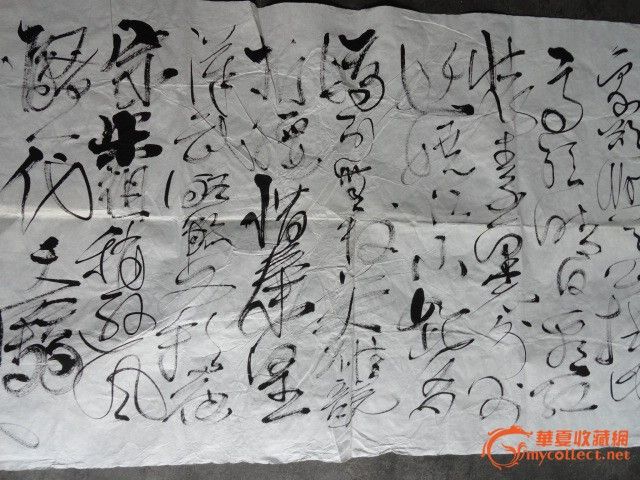 高须晴日看红
装素裹分外
妖娆江山如此多
娇引无数英雄竞
折腰惜秦皇
汉武略输文采唐
宗宋祖稍逊风
骚一代天骄
華夏收藏網
mycollect.net